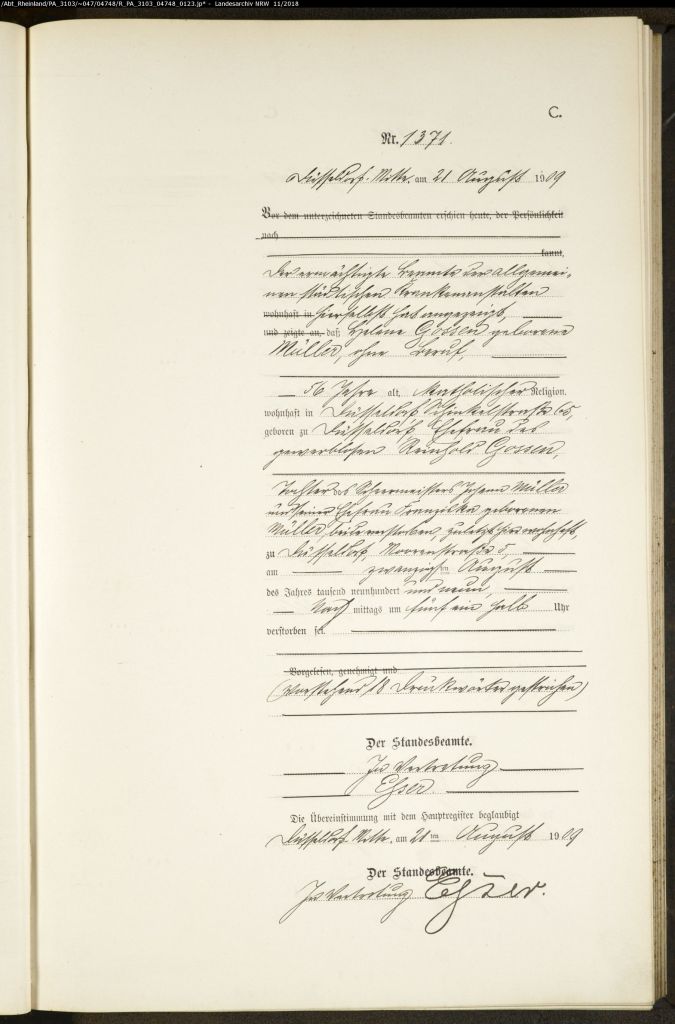 /Abt_Rheinland/PA_3103/~047/04748/R_PA_3103_04748_0123.jp* - Landesarchiv NRW 11/2018
C.
Nr. 1371.
Düsseldorf-Mitte, am 21 August 1909
Vor dem unterzeichneten Standesbeamten erschien heute, der Persönlichkeit
nach
kannt,
Der ermächtigte Beamte der allgemei-
nen städtischen Krankenanstalten
wohnhaft in hierselbst hat angezeigt,
und zeigte an, daß Helene Gossen geborene
Müller, ohne Beruf,
56 Jahre alt, katholischer Religion,
wohnhaft in Düsseldorf Schinkelstraße 65,
geboren zu Düsseldorf, Ehefrau des
gewerblosen Reinhold Gossen,
Tochter des Johann Müller
und seiner Ehefrau Franziska geborenen
Müller, beide verstorben, zuletzt wohnhaft,
zu Düsseldorf, Moorenstraße 5,
am zwanzigsten August
des Jahres tausend neunhundert und neun,
Nach mittags um fünf ein halb Uhr
verstorben sei.
Vorgelesen, genehmigt und
(Vorstehend 18 Druckwörter gestrichen)
Der Standesbeamte.
In Vertretung
Esser.
Die Übereinstimmung mit dem Hauptregister beglaubigt
Düsseldorf-Mitte, am 21ten August 1909
Der Standesbeamte.
In Vertretung Esser.